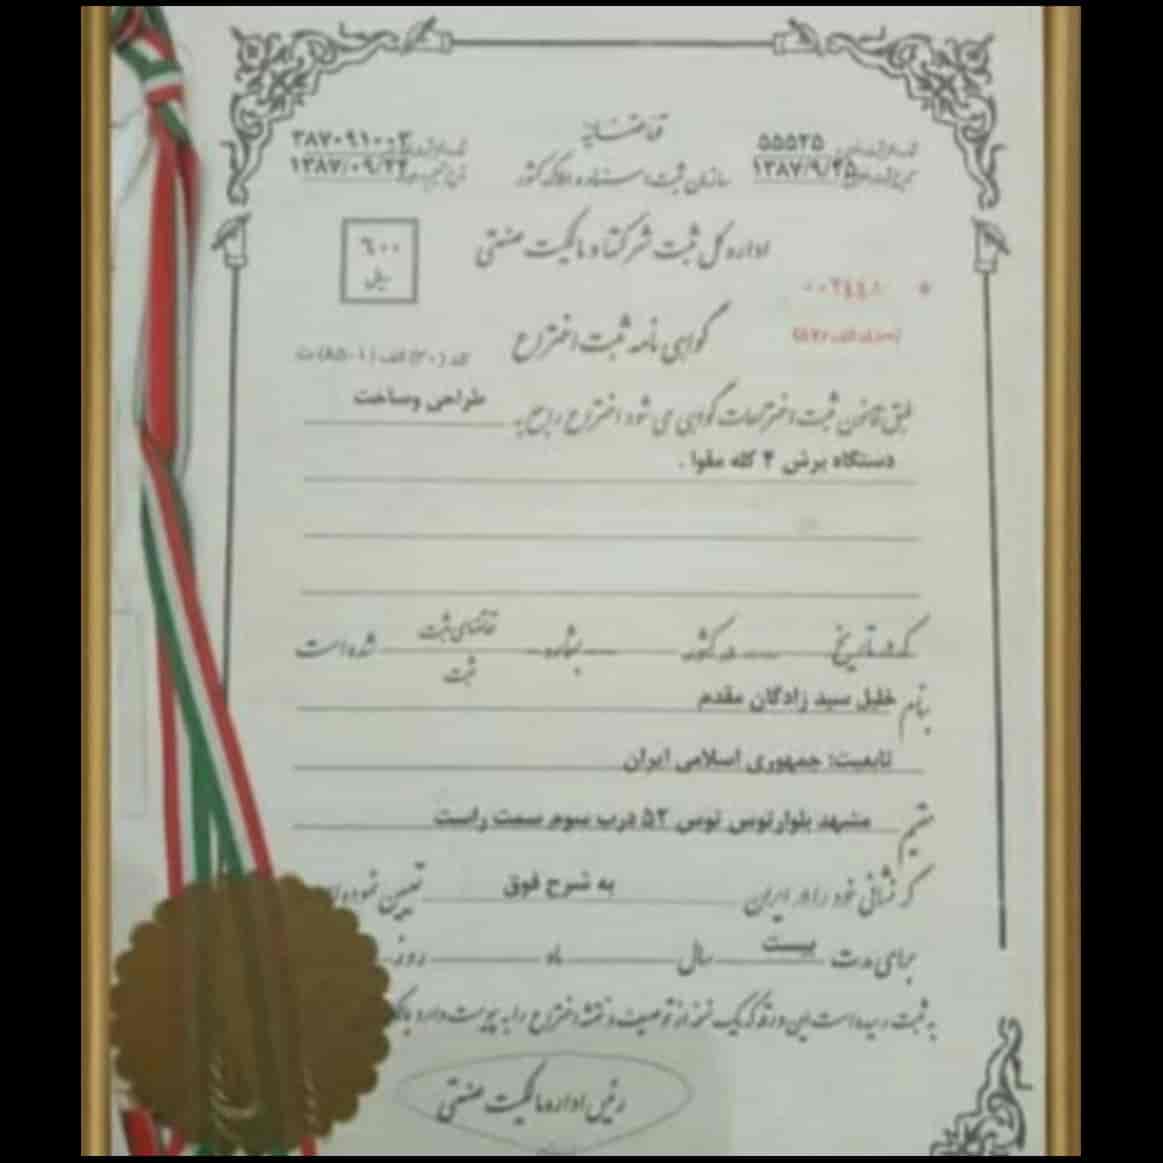 قوه قضائیه
۵۵۵۲۵
۳۸۷۰۹۱۰۰۳
سازمان ثبت اسناد و املاک کشور
۱۳۸۷/۹/۲۵
۱۳۸۷/۰۹/۲۴
اداره کل ثبت شرکتها و مالکیت صنعتی
۶۰۰
ریال
گواهی نامه ثبت اختراع
طبق قانون ثبت اختراعات گواهی می شود اختراع راجع به طراحی وساخت
دستگاه برش ۴ کله مقوا .
که در تاریخ در کشور بشماره تقاضای ثبت شده است
ثبت
بنام خلیل سید زادگان مقدم
تابعیت: جمهوری اسلامی ایران
مقیم مشهد بلوار توس توس ۵۲ درب سوم سمت راست
که نشانی خود را در ایران به شرح فوق تعیین نموده
برای مدت بیست سال ماه روز
به ثبت رسیده است این ورقه که یک نسخه از توصیف و نقشه اختراع را به پیوست دارد
رئیس اداره مالکیت صنعتی